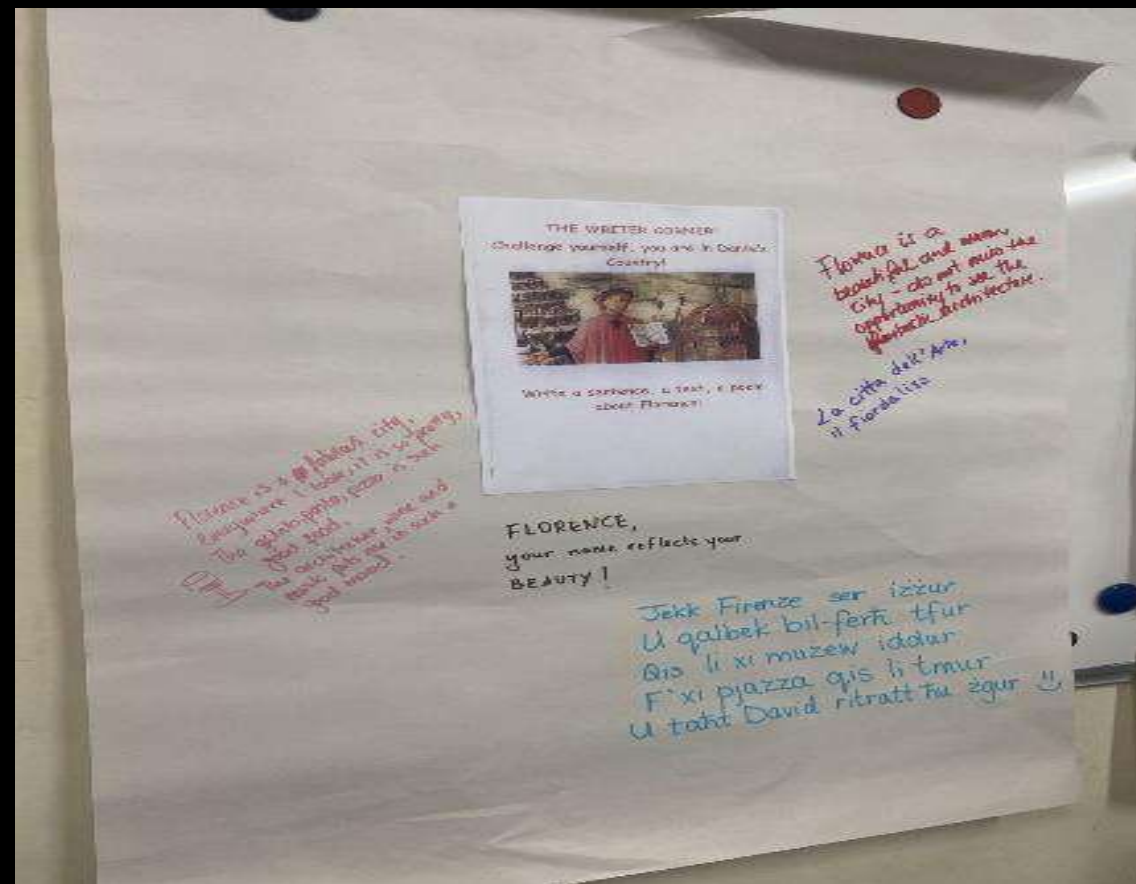 THE WRITER CORNER
Challenge yourself, you are in Dante's
Country!
Write a sentence, a text, a poem
about Florence!
Florence is a
beautiful and warm
city - do not miss the
opportunity to see the
fantastic architecture.
La citta dell'Arte,
il fiordaliso
Florence is a fabulous city,
everywhere I look, it is so pretty,
The gelato, pasta, pizza is such
good food,
The architecture, wine and
music puts me in such a
good mood!
FLORENCE,
your name reflects your
BEAUTY!
Jekk Firenze ser iżżur
U qalbek bil-ferħ tfur
Qis li xi mużew iddur
F'xi pjazza qis li tmur
U taħt David ritratt ħu żgur